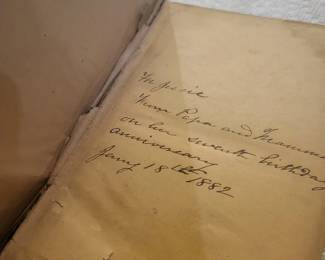 To Josie
from Papa and Mamma
on her seventh birthday
anniversary
Jany 18th 1882